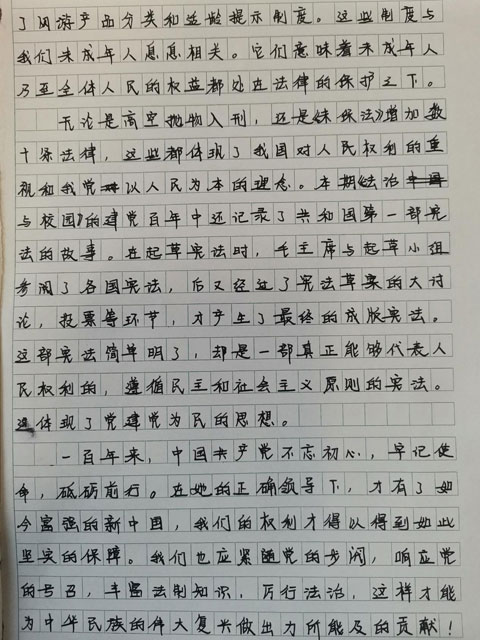 了网游产品分类和适龄提示制度。这些制度与
我们未成年人息息相关。它们意味着未成年人
乃至全体人民的权益都处在法律的保护之下。
无论是高空抛物入刑，还是《未保法》增加数
十条法律，这些都体现了我国对人民权利的重
视和我党以人民为本的理念。本期《法治
与校园》的建党百年中还记录了共和国第一部宪
法的故事。在起草宪法时，毛主席与起草小组
参阅了各国宪法，后又经过了宪法草案的大讨
论，投票等环节，才产生了最终的成版宪法。
这部宪法简单明了，却是一部真正能够代表人
民权利的，遵循民主和社会主义原则的宪法。
这体现了党建党为民的思想。
一百年来，中国共产党不忘初心，牢记使
命，砥砺前行。在她的正确领导下，才有了如
今富强的新中国，我们的权利才得以得到如此
坚实的保障。我们也应紧随党的步阀，响应党
的号召，丰富法制知识，厉行法治，这样才能
为中华民族的伟大复兴做出力所能及的贡献！